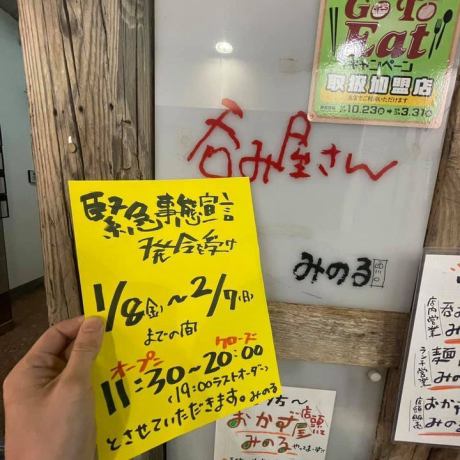 Go To
Eat
キャンペーン
取扱加盟店
10.23㊎→3.31㊌
呑み屋さん
みのる
緊急事態宣言
発令を受け
1/8(金)~2/7(日)
までの間
オープン クローズ
11:30~20:00
(19:00ラストオーダー)
とさせていただきます。みのる
店頭に
おかず屋
みのる
店内営業
呑み
ランチ営業
麺
店頭販売
おかず